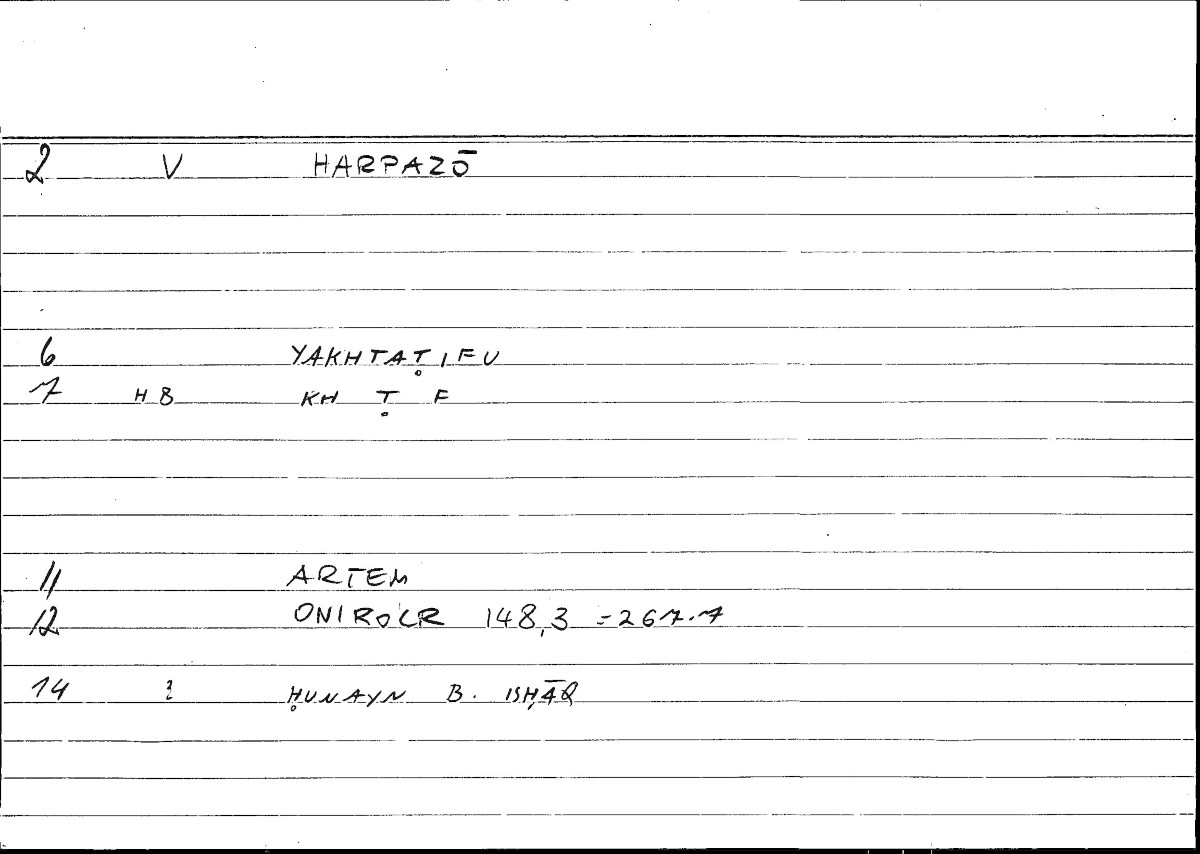 2 V HARPAZŌ
6 YAKHTAṬIFU
7 H8 KH Ṭ F
11 ARTEM
12 ONIROCR 148,3 = 267.7
14 ? ḤUNAYN B. ISḤĀQ